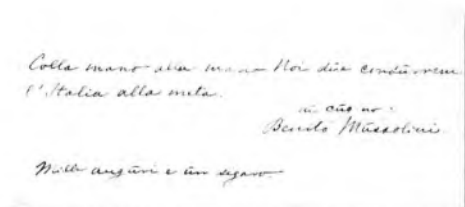 Colla mano alla mano Noi due condurrem
l'Italia alla meta.
Benito Mussolini
Mille auguri e un segaro.